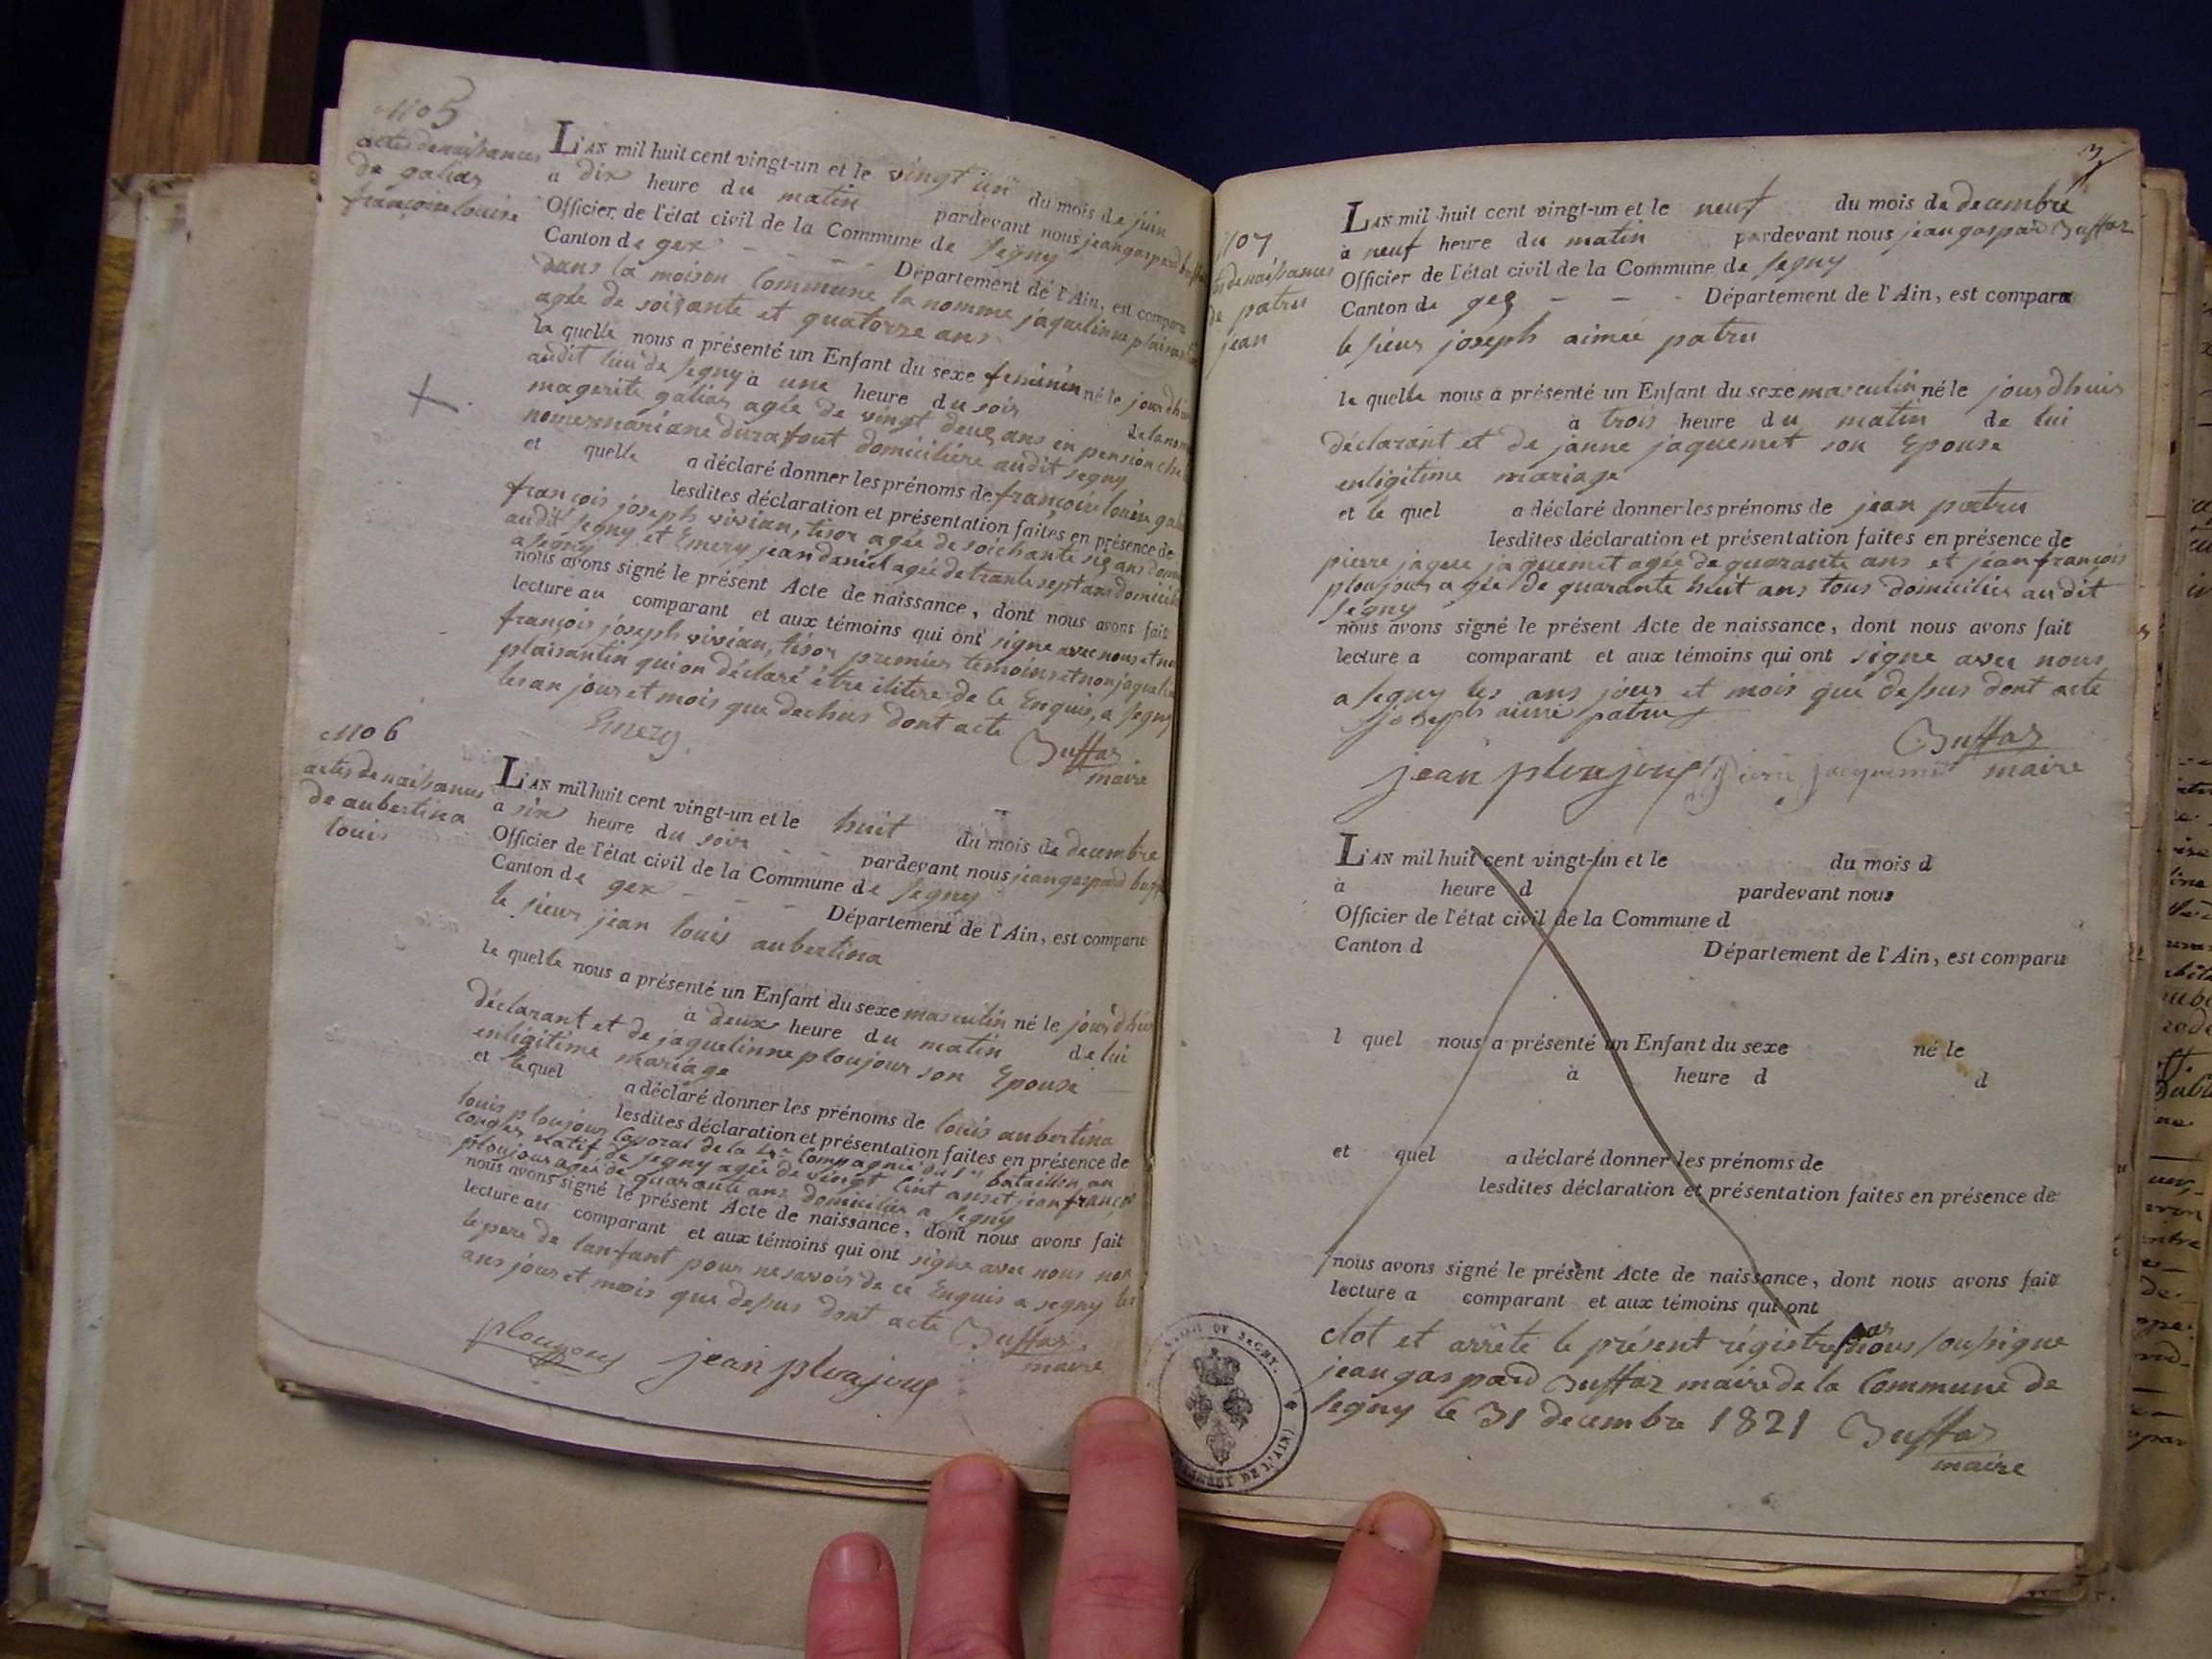 No 5
actes de naissances
de galias
françoise louise
L'AN mil huit cent vingt-un et le vingt un du mois de juin
a dix heure du matin pardevant nous jean gaspard
Officier de l'état civil de la Commune de segny
Canton de gex - - - Département de l'Ain, est comparu
dans la maison Commune la nomme jaquelinne
agée de soisante et quatorze ans
la quelle nous a présenté un Enfant du sexe feminin né le jourdhui
audit lieu de segny à une heure du soir
magerite galias agée de vingt deux ans en pension
mariane durafout domiciliére audit segny
et quelle a déclaré donner les prénoms de françoise louise
lesdites déclaration et présentation faites en présence de
françois joseph vivian, tisor agée de soichante six ans
audit segny et Emery jean daniel agée de trante sept ans
a segny
nous avons signé le présent Acte de naissance, dont nous avons fait
lecture au comparant et aux témoins qui ont signe avec nous et
françois joseph vivian, tisor premier temoins et non
plaisantin qui on déclaré être ilitere de Ce Enquis, a segny
les an jour et mois que dechus dont acte
Emery Buffaz
maire
No 6
actes de naissances
de aubertina
louis
L'AN mil huit cent vingt-un et le huit du mois de decembre
a six heure du soir - - pardevant nous jean gaspard
Officier de l'état civil de la Commune de segny
Canton de gex - - - Département de l'Ain, est comparu
le sieur jean louis aubertina
le quelle nous a présenté un Enfant du sexe masculin né le
à deux heure du matin de lui
déclarant et de jaquelinne ploujour son Epouse
enligitime mariage
et le quel a déclaré donner les prénoms de louis aubertina
lesdites déclaration et présentation faites en présence de
louis ploujour Caporal de la 4e Compagnie du 1er bataillon an
Conger natif de segny agée de vingt Cint ans et jean
ploujour agée de quarante ans domicilier a segny
nous avons signé le présent Acte de naissance, dont nous avons fait
lecture au comparant et aux témoins qui ont signe avec nous non
le pere de lanfant pour ne savoir de ce Enquis a segny les
ans jour et mois que dessus dont acte Buffaz
maire
jean ploujour
3
07
de naissances
de patru
jean
L'AN mil huit cent vingt-un et le neuf du mois de decembre
à neuf heure du matin pardevant nous jean gaspard Buffaz
Officier de l'état civil de la Commune de segny
Canton de gex - - - Département de l'Ain, est compara
le sieur joseph aimée patru
le quelle nous a présenté un Enfant du sexe masculin né le jourdhuis
à trois heure du matin de lui
déclarant et de janne jaquemet son Epouse
enligitime mariage
et le quel a déclaré donner les prénoms de jean patru
lesdites déclaration et présentation faites en présence de
pierre jaque jaquemet agée de quarante ans et jean françois
ploujour agée de quarante huit ans tous domicilier audit
segny
nous avons signé le présent Acte de naissance, dont nous avons fait
lecture a comparant et aux témoins qui ont signe avec nous
a segny les ans jour et mois que dessus dont acte
joseph aimé patru
Buffaz
jean ploujour Pierre Jacquemet maire
L'AN mil huit cent vingt-un et le du mois d
à heure d pardevant nous
Officier de l'état civil de la Commune d
Canton d Département de l'Ain, est comparu
l quel nous a présenté un Enfant du sexe né le
à heure d d
et quel a déclaré donner les prénoms de
lesdites déclaration et présentation faites en présence de
nous avons signé le présent Acte de naissance, dont nous avons fait
lecture a comparant et aux témoins qui ont
clot et arrête le présent régistre par nous sousigne
jean gaspard Buffaz maire de la Commune de
segny le 31 decembre 1821 Buffaz
maire